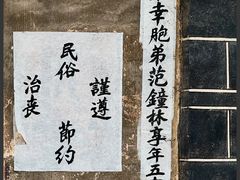 幸胞弟范鐘林享年五
謹遵
民俗
節约
治丧